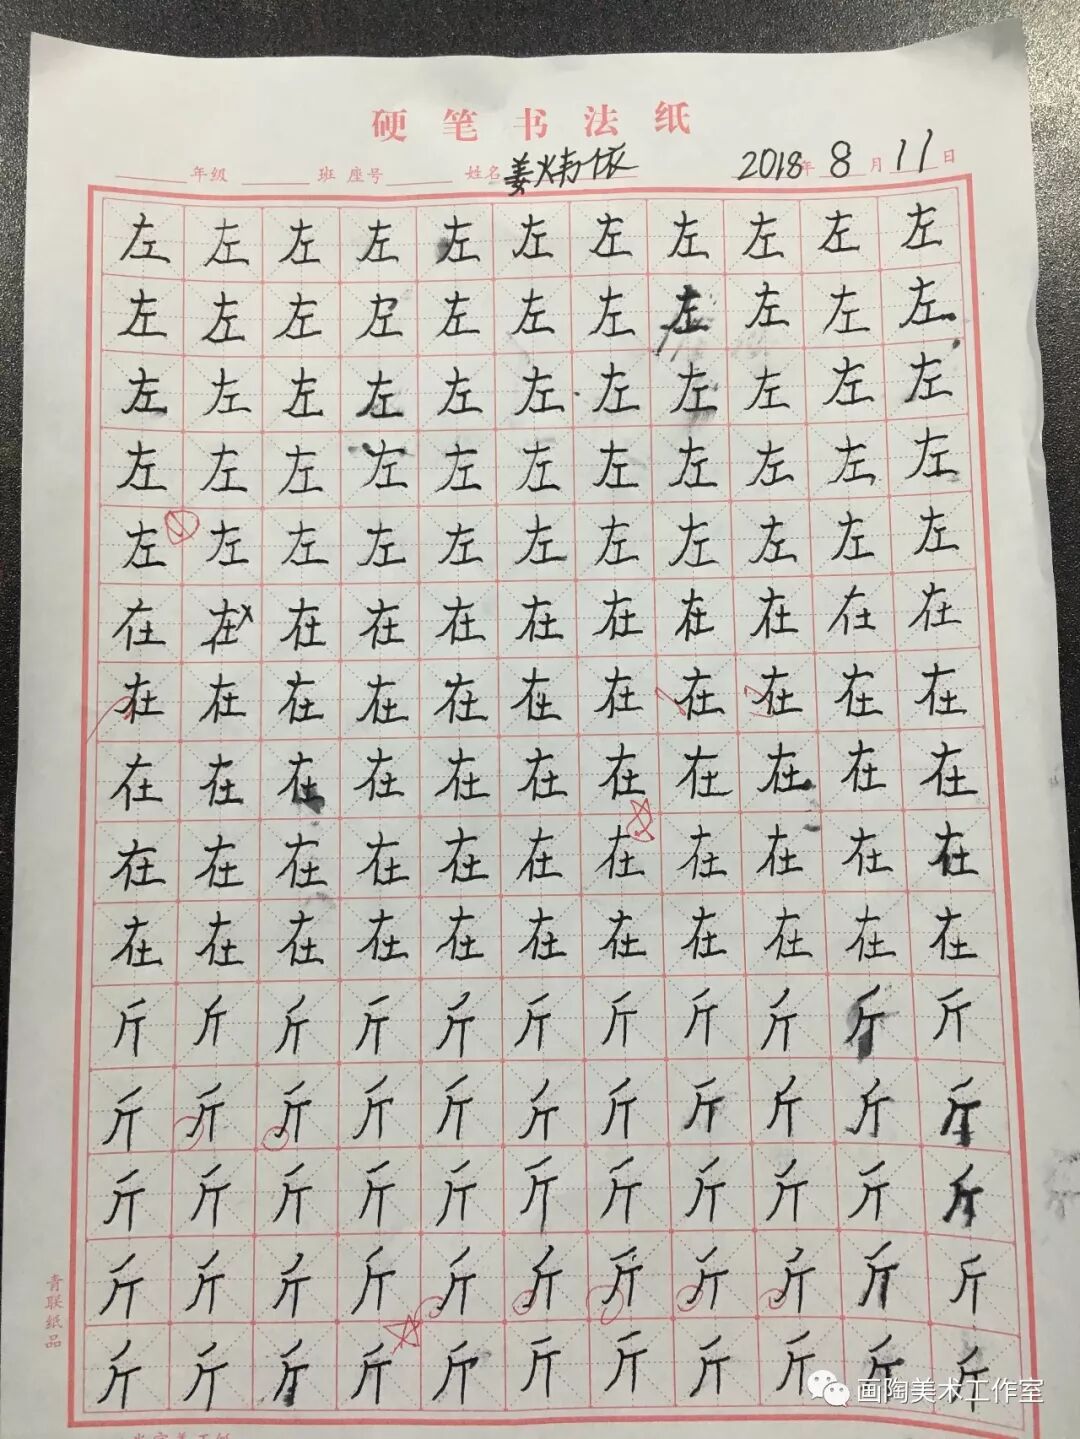 硬笔书法纸
年级 班 座号 姓名 姜炜依 2018年 8月 11日
左左左左左左左左左左左
左左左左左左左左左左左
左左左左左左左左左左左
左左左左左左左左左左左
左左左左左左左左左左左
在在在在在在在在在在在
在在在在在在在在在在在
在在在在在在在在在在在
在在在在在在在在在在在
在在在在在在在在在在在
斤斤斤斤斤斤斤斤斤斤斤
斤斤斤斤斤斤斤斤斤斤斤
斤斤斤斤斤斤斤斤斤斤斤
斤斤斤斤斤斤斤斤斤斤斤
斤斤斤斤斤斤斤斤斤斤斤
青联纸品
画陶美术工作室